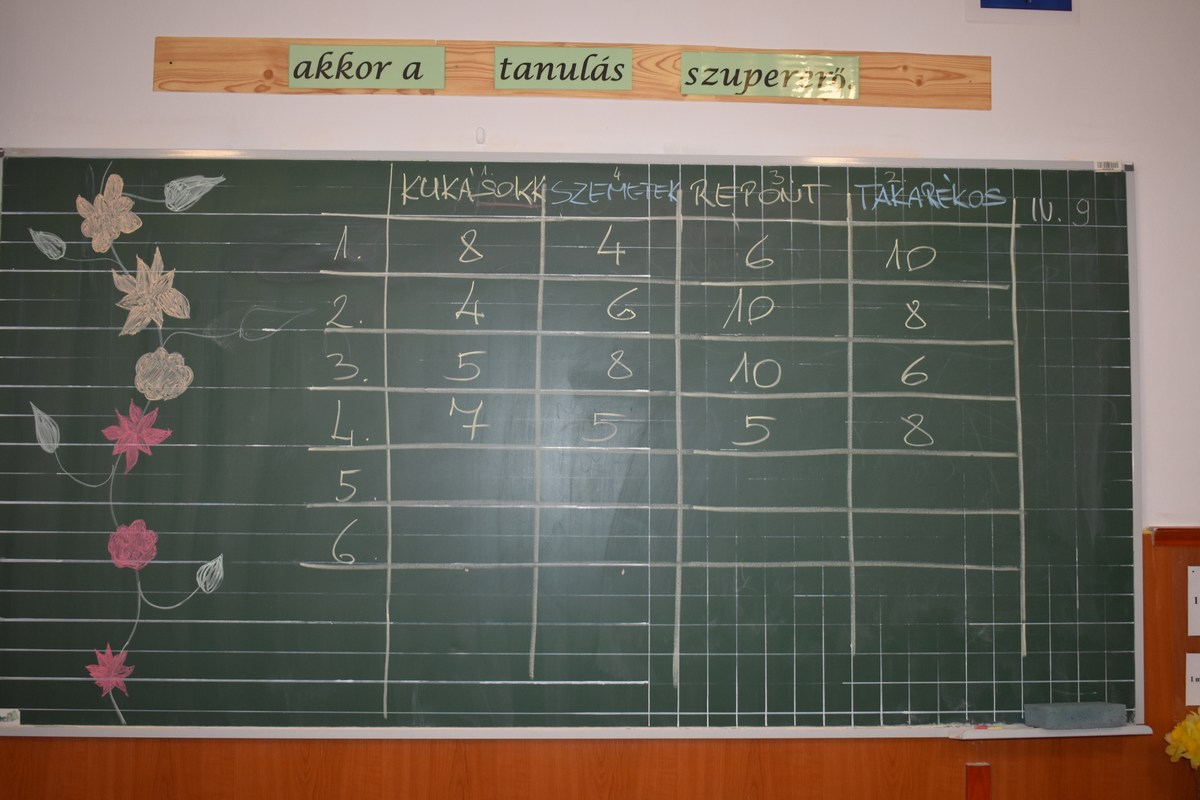 akkor a tanulás szupererő.
1 4 3 2
KUKÁSOKK SZEMETEK REPONT TAKARÉKOS IV. 9
1. 8 4 6 10
2. 4 6 10 8
3. 5 8 10 6
4. 7 5 5 8
5.
6.